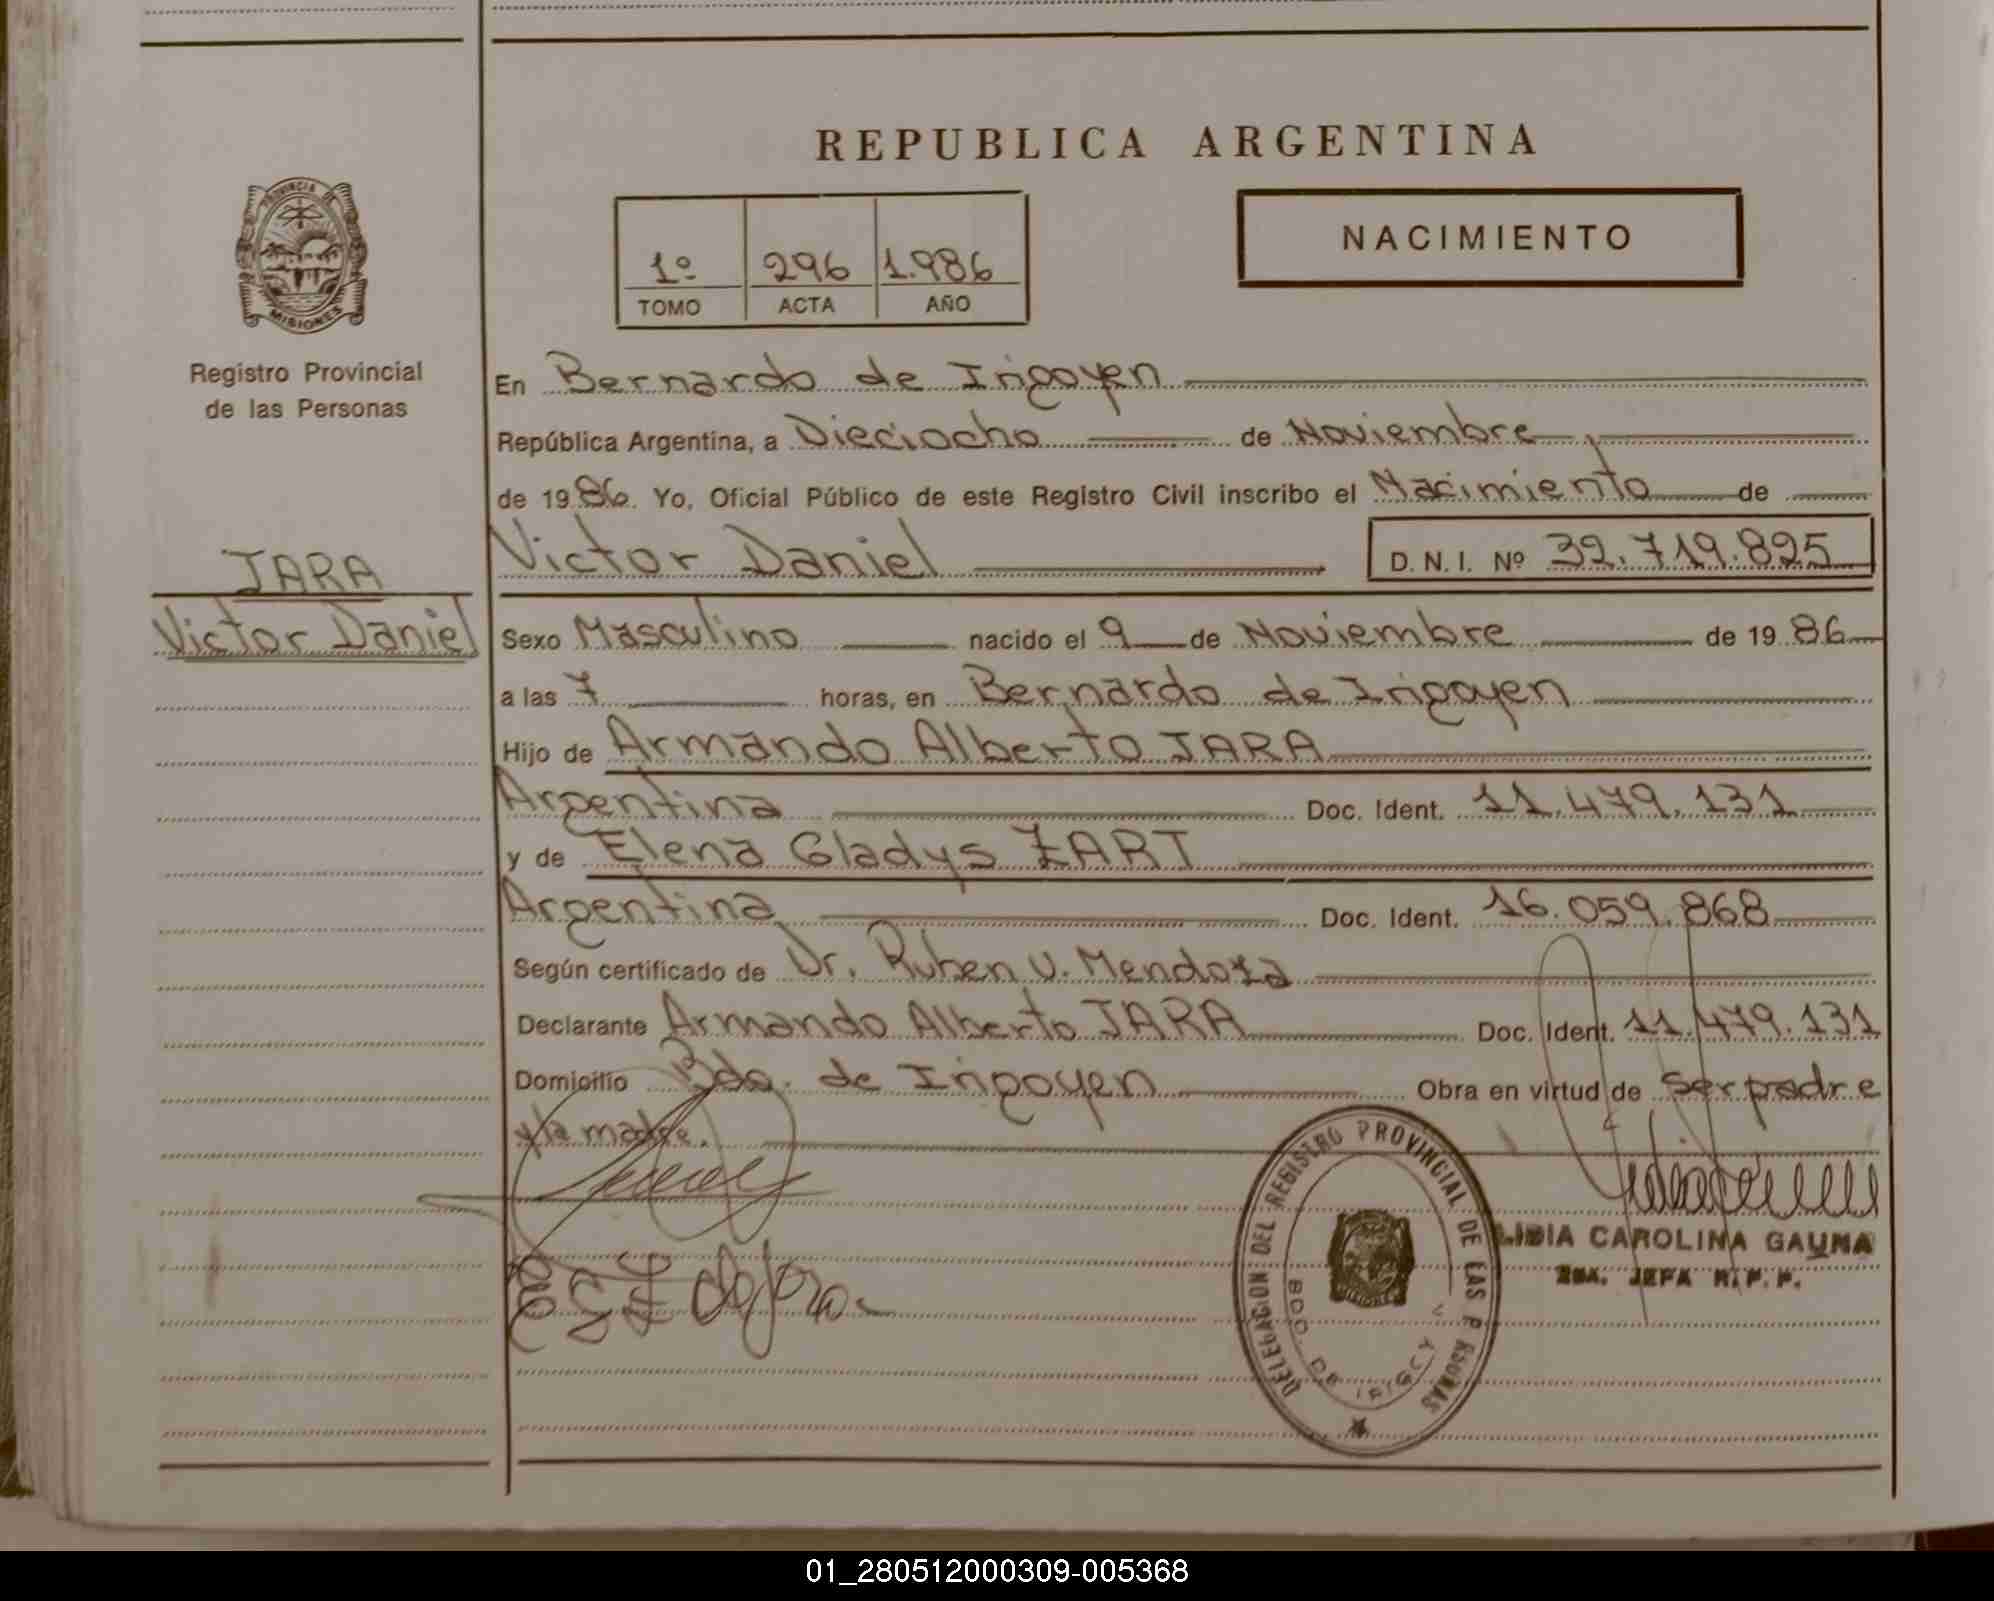 REPUBLICA ARGENTINA
PROVINCIA DE
MISIONES
Registro Provincial
de las Personas
JARA
Victor Daniel
1º 296 1.986
TOMO ACTA AÑO
NACIMIENTO
En Bernardo de Irigoyen
República Argentina, a Dieciocho de Noviembre
de 1986. Yo, Oficial Público de este Registro Civil inscribo el Nacimiento de
Victor Daniel D. N. I. Nº 32.719.825
Sexo Masculino nacido el 9 de Noviembre de 1986
a las 7 horas, en Bernardo de Irigoyen
Hijo de Armando Alberto JARA
Argentina Doc. Ident. 11.479.131
y de Elena Gladys ZART
Argentina Doc. Ident. 16.059.868
Según certificado de Dr. Ruben V. Mendoza
Declarante Armando Alberto JARA Doc. Ident. 11.479.131
Domicilio Bdo. de Irigoyen Obra en virtud de ser padre
y la madre.
DELEGACION DEL REGISTRO PROVINCIAL DE LAS P RSONAS
BDO. DE IRIGOY
LIDIA CAROLINA GAUNA
JEFA R. P. P.
01_280512000309-005368